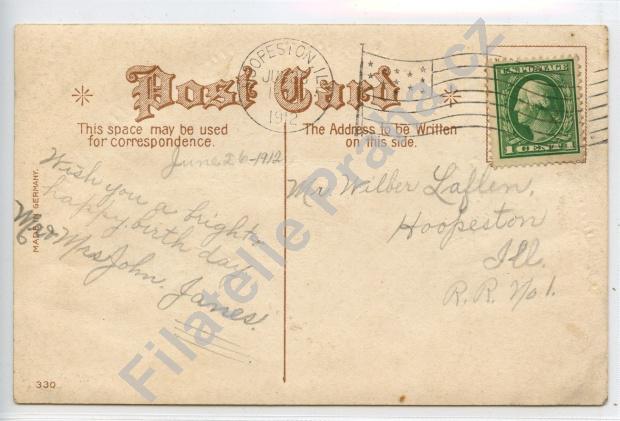 Post Card
This space may be used
for correspondence.
The Address to be Written
on this side.
HOOPESTON, ILL.
1912
U.S. POSTAGE
1 CENT 1
June 26-1912
Wish you a bright
happy birth day
Mr & Mrs John Janes.
Mr Wilber Laflen,
Hoopeston
Ill.
R.R. No 1.
MADE IN GERMANY.
330
Filatelie Praha.cz